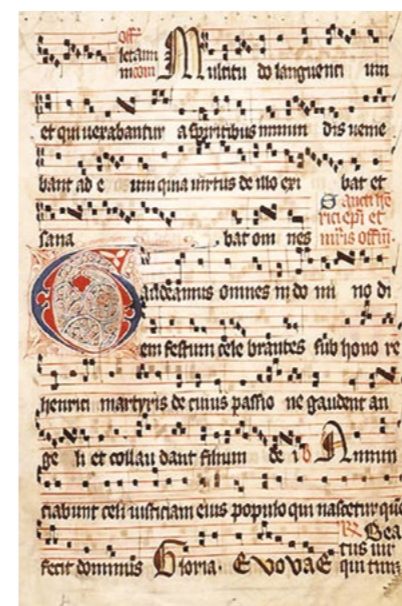 letam
com Multitu do languenti um
et qui uexabantur a spiritibus inmun dis uenie
bant ad e um quia uirtus de illo exi bat et
Sancti he
rici epi et
sana bat om nes mris offm.
Gaudeamus omnes in do mi no di
em festum cele brantes sub hono re
henrici martyris de cuius passio ne gaudent an
ge li et collau dant filium de i Annun
ciabunt celi iusticiam eius populo qui nascetur que
Bea
tus uir
fecit dominus Gloria. EVOVAE qui tim